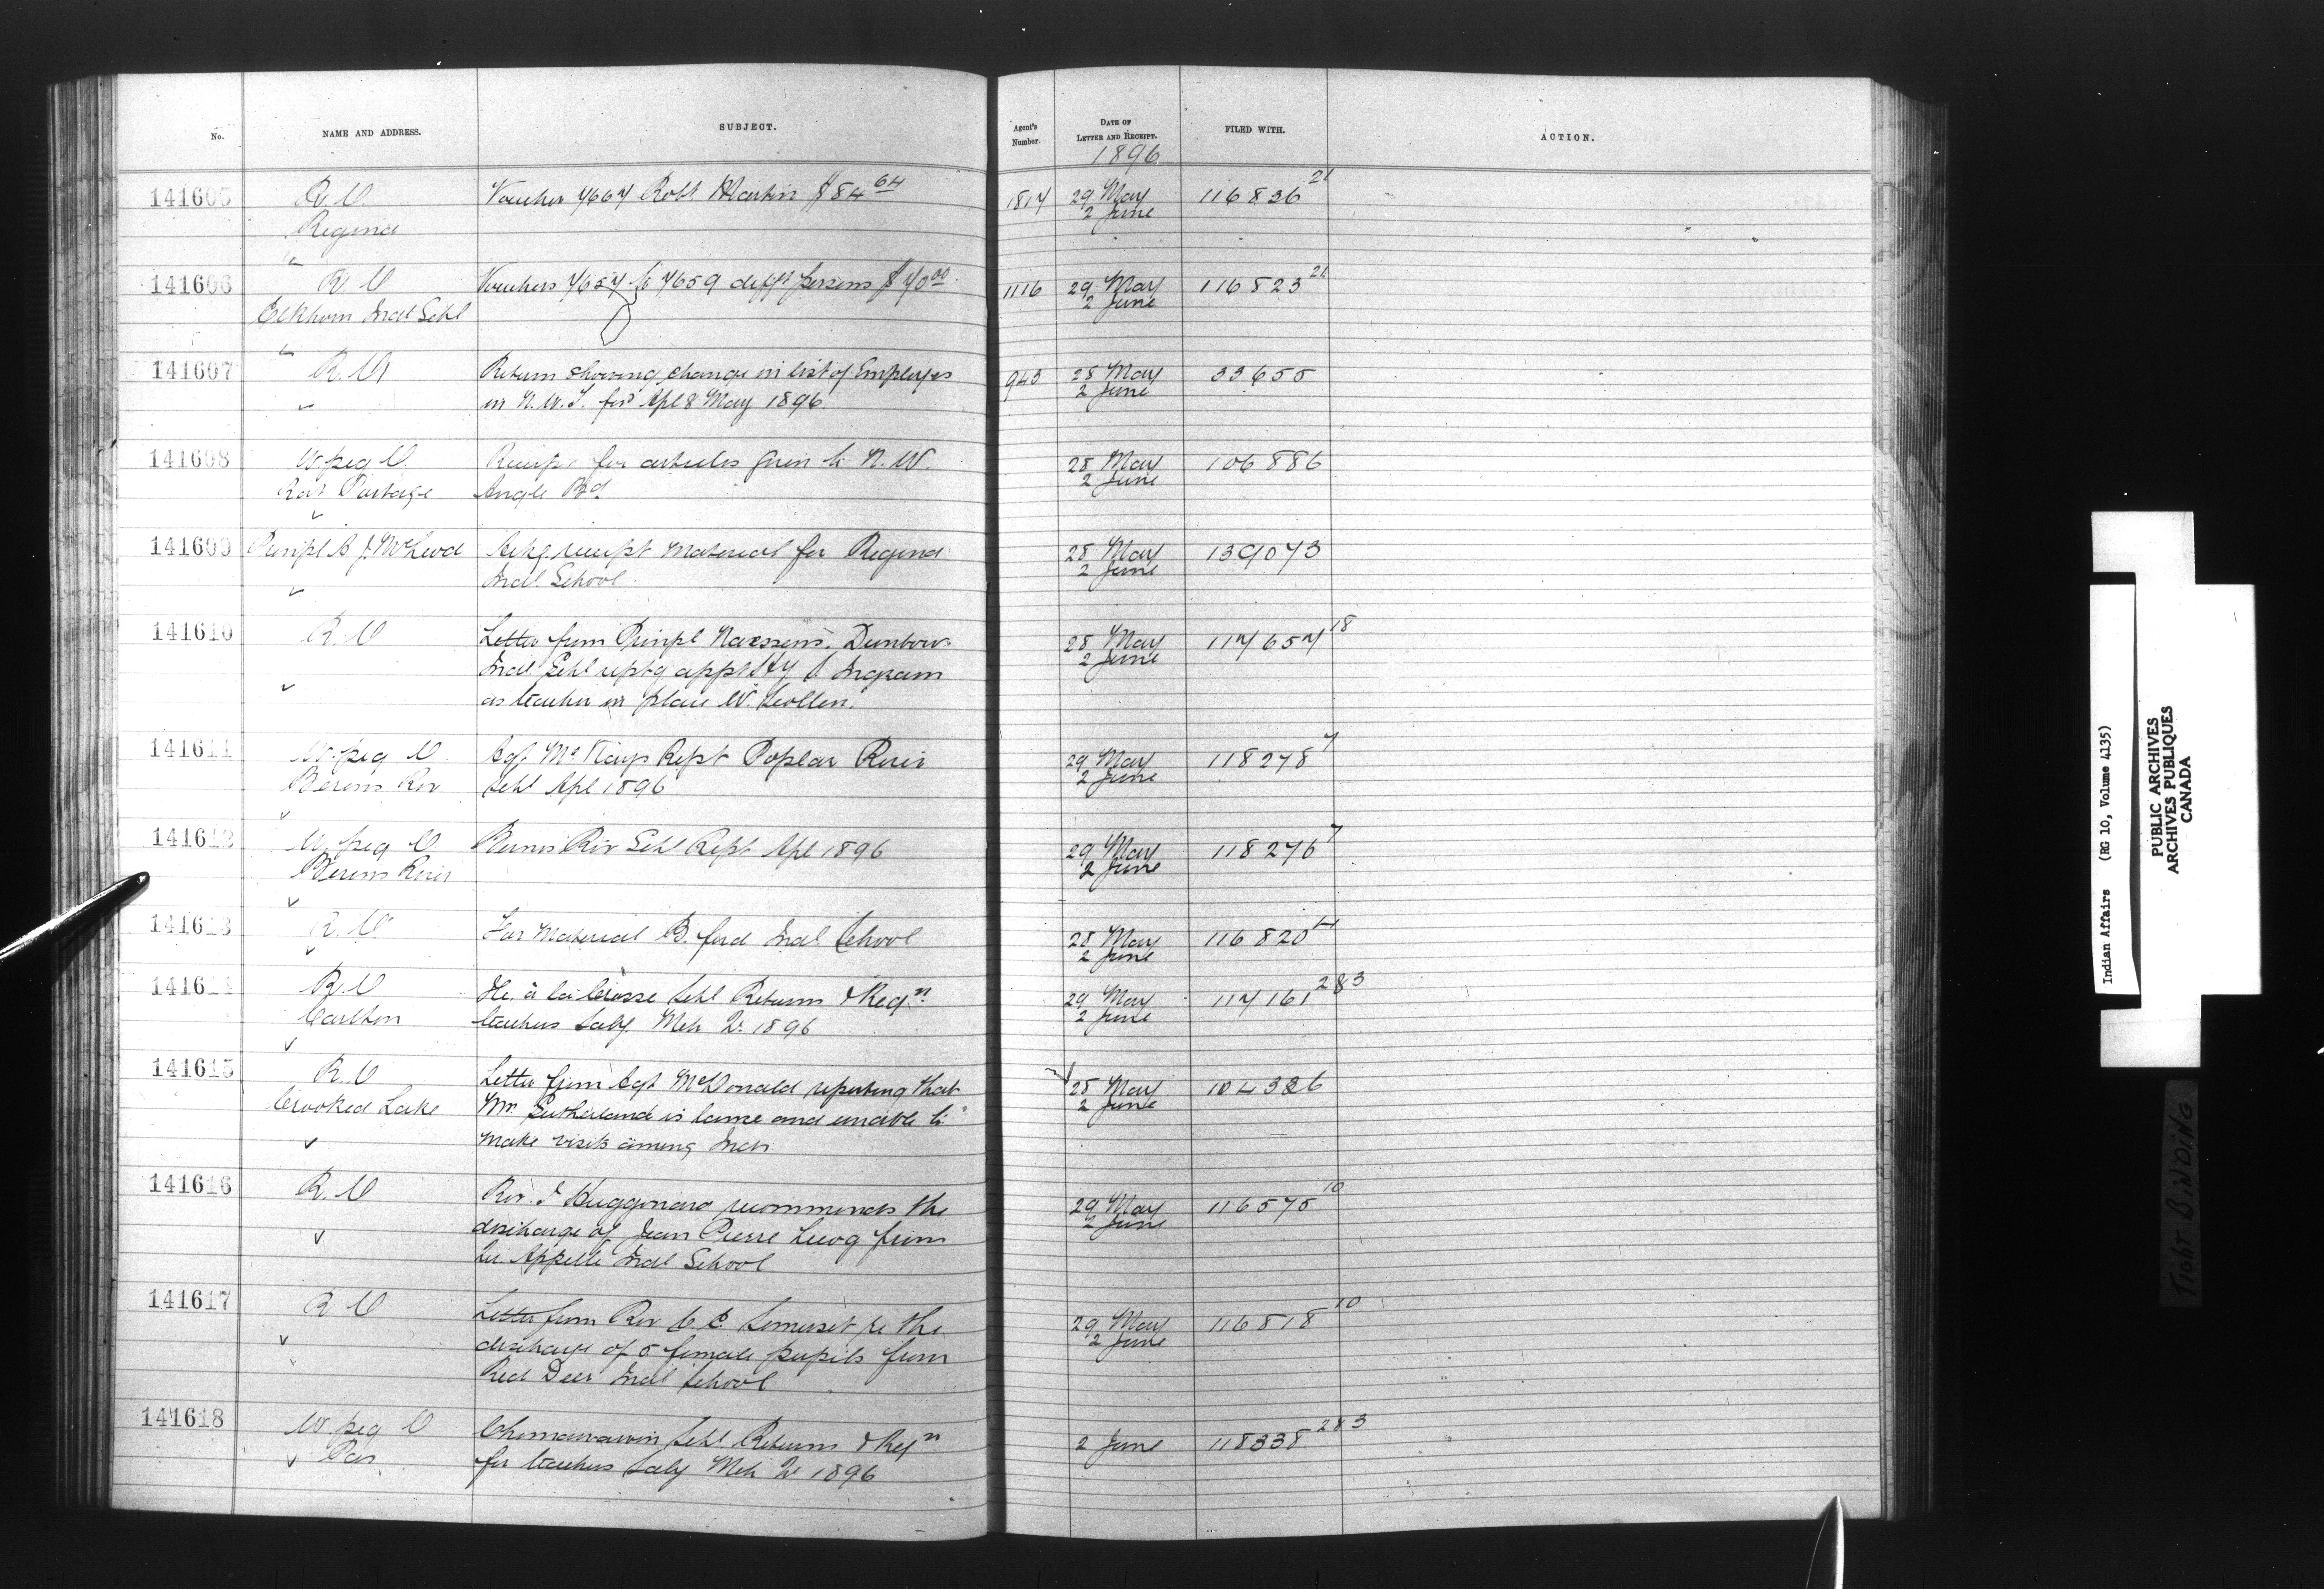 No. NAME AND ADDRESS. SUBJECT. Agent's Number. DATE OF LETTER AND RECEIPT. FILED WITH. ACTION.
1896
141605 R. O Voucher 7667 Robt Martin $84 64 1817 29 May 116836 21
Regina 2 June
141606 R O Vouchers 7657 to 7659 difft persons $70 00 1116 29 May 116823 21
Elkhorn Indl Schl 2 June
141607 R. O Return showing change in list of Employes 943 28 May 33655
in N. W. T. for Apl & May 1896 2 June
141608 W.peg O Receipt for articles given to N. W. 28 May 106886
Rat Portage Angle Bd 2 June
141609 Prinpl A J. McLeod Ackg receipt material for Regina 28 May 139073
Indl School 2 June
141610 R. O Letter from Prinpl Naessens, Dunbow 28 May 117657 18
Indl Schl reptg appt Hy Ingram 2 June
as teacher in place W. Scollen.
141611 W.peg O Agt McKays Rept Poplar River 29 May 118278 7
Berens Riv Schl Apl 1896 2 June
141612 W.peg O Berens Riv Schl Rept Apl 1896 29 May 118276 7
Berens River 2 June
141613 R. O For Material B.ford Indl School 28 May 116820
2 June
141614 R. O Ile à la Crosse Schl Returns & Reqn 29 May 117161 2&3
Carlton teachers Saly Mch Qr 1896 2 June
141615 R. O Letter from Agt McDonald reporting that 28 May 104326
Crooked Lake Mr Sutherland is lame and unable to 2 June
make visits among Inds
141616 R. O Rev. J Hugonard recommends the 29 May 116575 10
discharge of Jean Pierre from 2 June
Qu Appelle Indl School
141617 R O Letter from Rev C. E. Somerset re the 29 May 116818 10
discharge of 5 female pupils from 2 June
Red Deer Indl School
141618 W.peg O Chemawawin Schl Returns & Reqn 2 June 118338 2&3
Pas for teachers Saly Mch Qr 1896
Indian Affairs (RG 10, Volume 4135)
PUBLIC ARCHIVES
ARCHIVES PUBLIQUES
CANADA
TIGHT BINDING